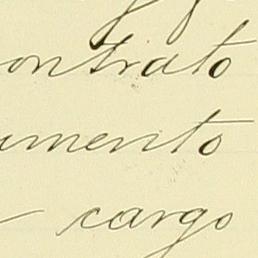 ontrato
umento
cargo